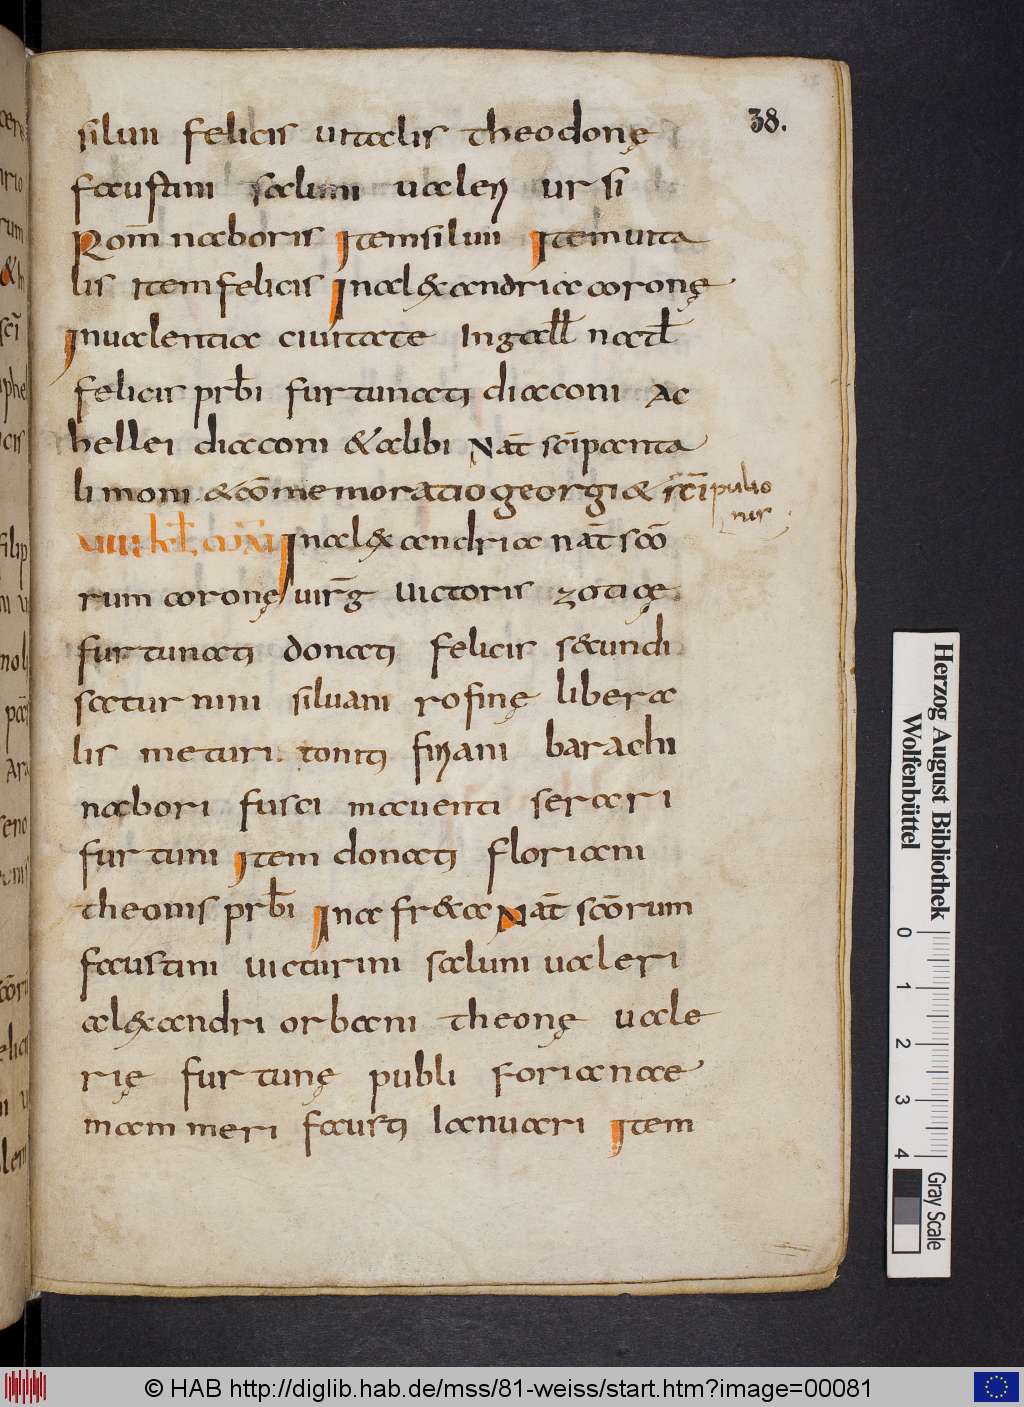 38.
silui felicis uitalis theodonę
faustini saluini ualeri ursi
Rom̄ naboris Item silui Item uita
lis item felicis In alexandria aronę
In ualentia ciuitate In gall̄ nat̄
felicis prb̄i furtunati diaconi Ac
hellei diaconi & abbi Nat̄ sc̄i panta
limoni & cōmemoratio georgi & sc̄i pulio
nis
viiii kl̄ mai In alexandria nat̄ scō
rum aronę uirḡ Uictoris zoticę
furtunati donati felicis secundi
saturnini siluani rofinę libera
lis meturi toniti firiani barachi
nabori fusci mauenti serari
furtuni Item donati floriani
theonis prb̄i In afreca Nat̄ scōrum
faustini uicturini saluni ualeri
alexandri orbani theonę uale
rię furtunę publi forianae
mammeri fausti Ianuari Item
Herzog August Bibliothek
Wolfenbüttel
0 1 2 3 4
Gray Scale
© HAB http://diglib.hab.de/mss/81-weiss/start.htm?image=00081